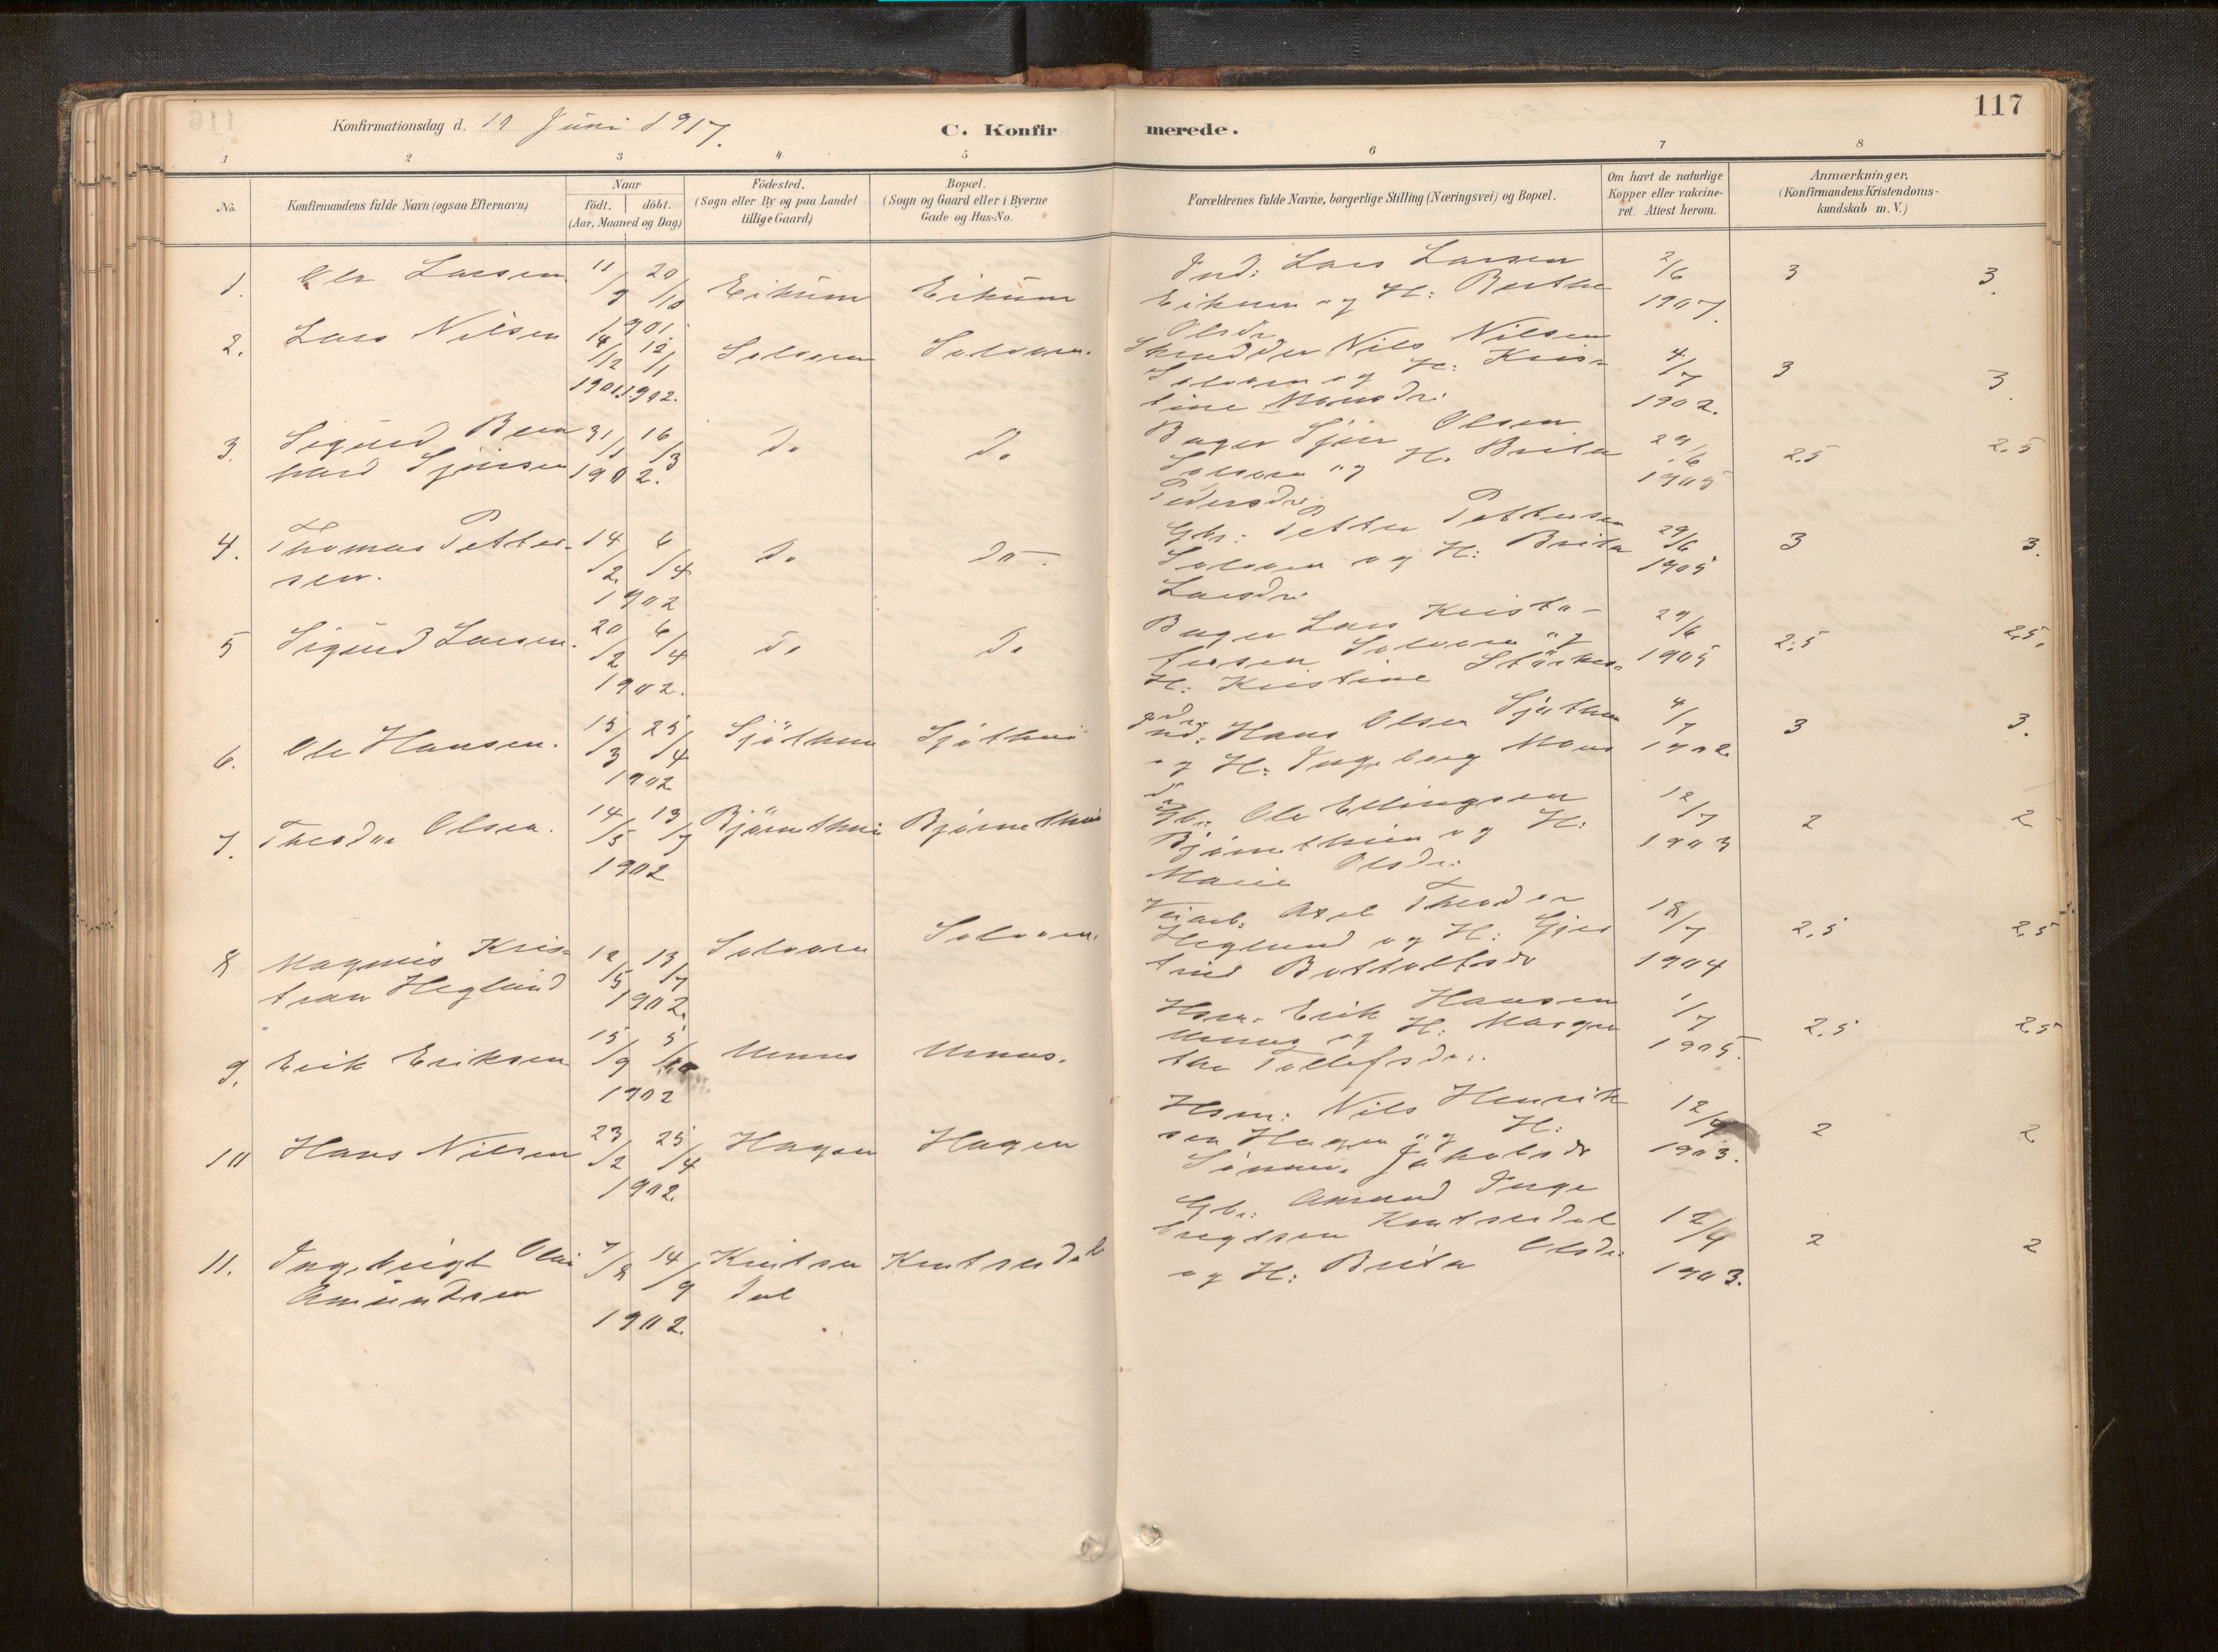 117
Konfirmationsdag d. 10 Juni 1917.
C. Konfirmerede.
1 2 3 4 5 6 7 8
No.
Konfirmandens fulde Navn (ogsaa Efternavn)
Naar
födt. döbt.
(Aar, Maaned og Dag)
Födested.
(Sogn eller By og paa Landet
tillige Gaard)
Bopæl.
(Sogn og Gaard eller i Byerne
Gade og Hus-No.
Forældrenes fulde Navne, borgerlige Stilling (Næringsvei) og Bopæl.
Om havt de naturlige
Kopper eller vakcine-
ret. Attest herom.
Anmærkninger,
(Konfirmandens Kristendoms-
kundskab m. V.)
1. Ole Larsen 11/9 20/10 Eikum Eikum
1901.
Ind: Lars Larsen 2/6 3 3.
Eikum og H: Berthe 1907.
Olsdr
2. Lars Nilsen 14/12 12/1 Solvorn Solvorn.
1901. 1902.
Skredder Nils Nilsen 4/7 3 3.
Solvorn og H: Kris-
tine Monsdr. 1902.
3. Sigurd Bern 31/1 16/3 do do
hard Sjursen 1902.
Bager Sjur Olsen 29/6 2.5 2.5
Solvorn og H. Brita 1905
Pedersdr.
4. Thomas Petter- 14/2 6/4 do do
sen. 1902
Gbr: Petter Pettersen 29/6 3 3.
Solvorn og H: Brita 1905
Larsdr.
5 Sigurd Larsen. 20/2 6/4 do do
1902.
Bager Lars Kristo- 29/6 2.5 2,5.
fersen Solvorn og 1905
H: Kristine
6. Ole Hansen. 15/3 25/4 Sjöthun Sjöthun
1902
Ind: Hans Olsen Sjöthun 4/7 3 3.
og H: Ingeborg Mons 1902.
dr
7. Theodor Olsen. 14/5 13/7 Björnethun Björnethun
1902
Gbr: Ole Ellingsen 12/7 2 2
Björnethun og H: 1903
Marie Olsdr.
8 Magnus Kris- 12/5 13/7 Solvorn Solvorn.
tian Heglund 1902.
Veiarb: Axel Theodor 18/7 2,5 2,5
Heglund og H: Gjer
trud Bottolfsdr 1904
9. Erik Eriksen 15/9 5/10 Urnes Urnes.
1902
Hsm. Erik Hansen 1/7 2,5 2,5
Urnes og H: Margre 1905.
the Tollefsdr.
10 Hans Nilsen 23/2 25/4 Hagen Hagen
1902.
Hsm: Nils Henrik 12/9 2 2
sen Hagen og H:
Jakobsdr 1903.
11. Ingebrigt Olai 7/8 14/9 Knutsen Knutsendal
Amundsen dal
1902.
Gbr: Amund Inge
brigtsen Knutsendal 12/9 2 2
og H: Brita Olsdr 1903.